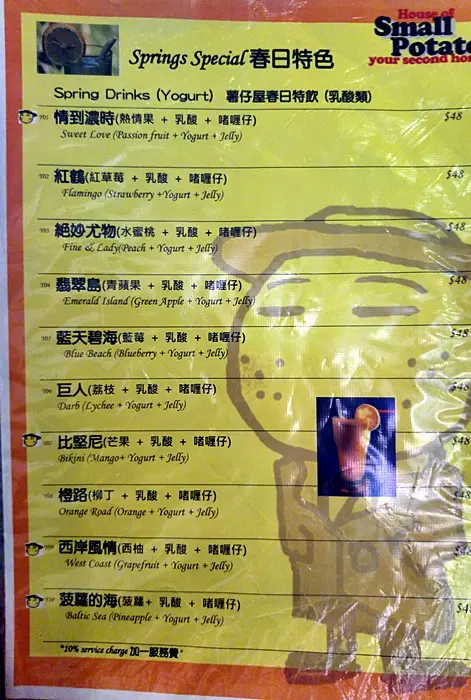 House of
Small
Potato
your second ho
Springs Special 春日特色
Spring Drinks (Yogurt) 薯仔屋春日特飲 (乳酸類)
Y01 情到濃時(熱情果 + 乳酸 + 啫喱仔) $48
Sweet Love (Passion fruit + Yogurt + Jelly)
Y02 紅鶴(紅草莓 + 乳酸 + 啫喱仔) $48
Flamingo (Strawberry +Yogurt + Jelly)
Y03 絕妙尤物(水蜜桃 + 乳酸 + 啫喱仔) $48
Fine & Lady(Peach + Yogurt + Jelly)
Y04 翡翠島(青蘋果 + 乳酸 + 啫喱仔) $48
Emerald Island (Green Apple + Yogurt + Jelly)
Y05 藍天碧海(藍莓 + 乳酸 + 啫喱仔) $48
Blue Beach (Blueberry + Yogurt + Jelly)
Y06 巨人(荔枝 + 乳酸 + 啫喱仔) $48
Darb (Lychee + Yogurt + Jelly)
Y07 比堅尼(芒果 + 乳酸 + 啫喱仔) $48
Bikini (Mango+ Yogurt + Jelly)
Y08 橙路(柳丁 + 乳酸 + 啫喱仔) $48
Orange Road (Orange + Yogurt + Jelly)
Y09 西岸風情(西柚 + 乳酸 + 啫喱仔) $48
West Coast (Grapefruit + Yogurt + Jelly)
Y10 菠蘿的海(菠蘿+ 乳酸 + 啫喱仔) $4
Baltic Sea (Pineapple + Yogurt + Jelly)
*10% service charge 加一服務費*